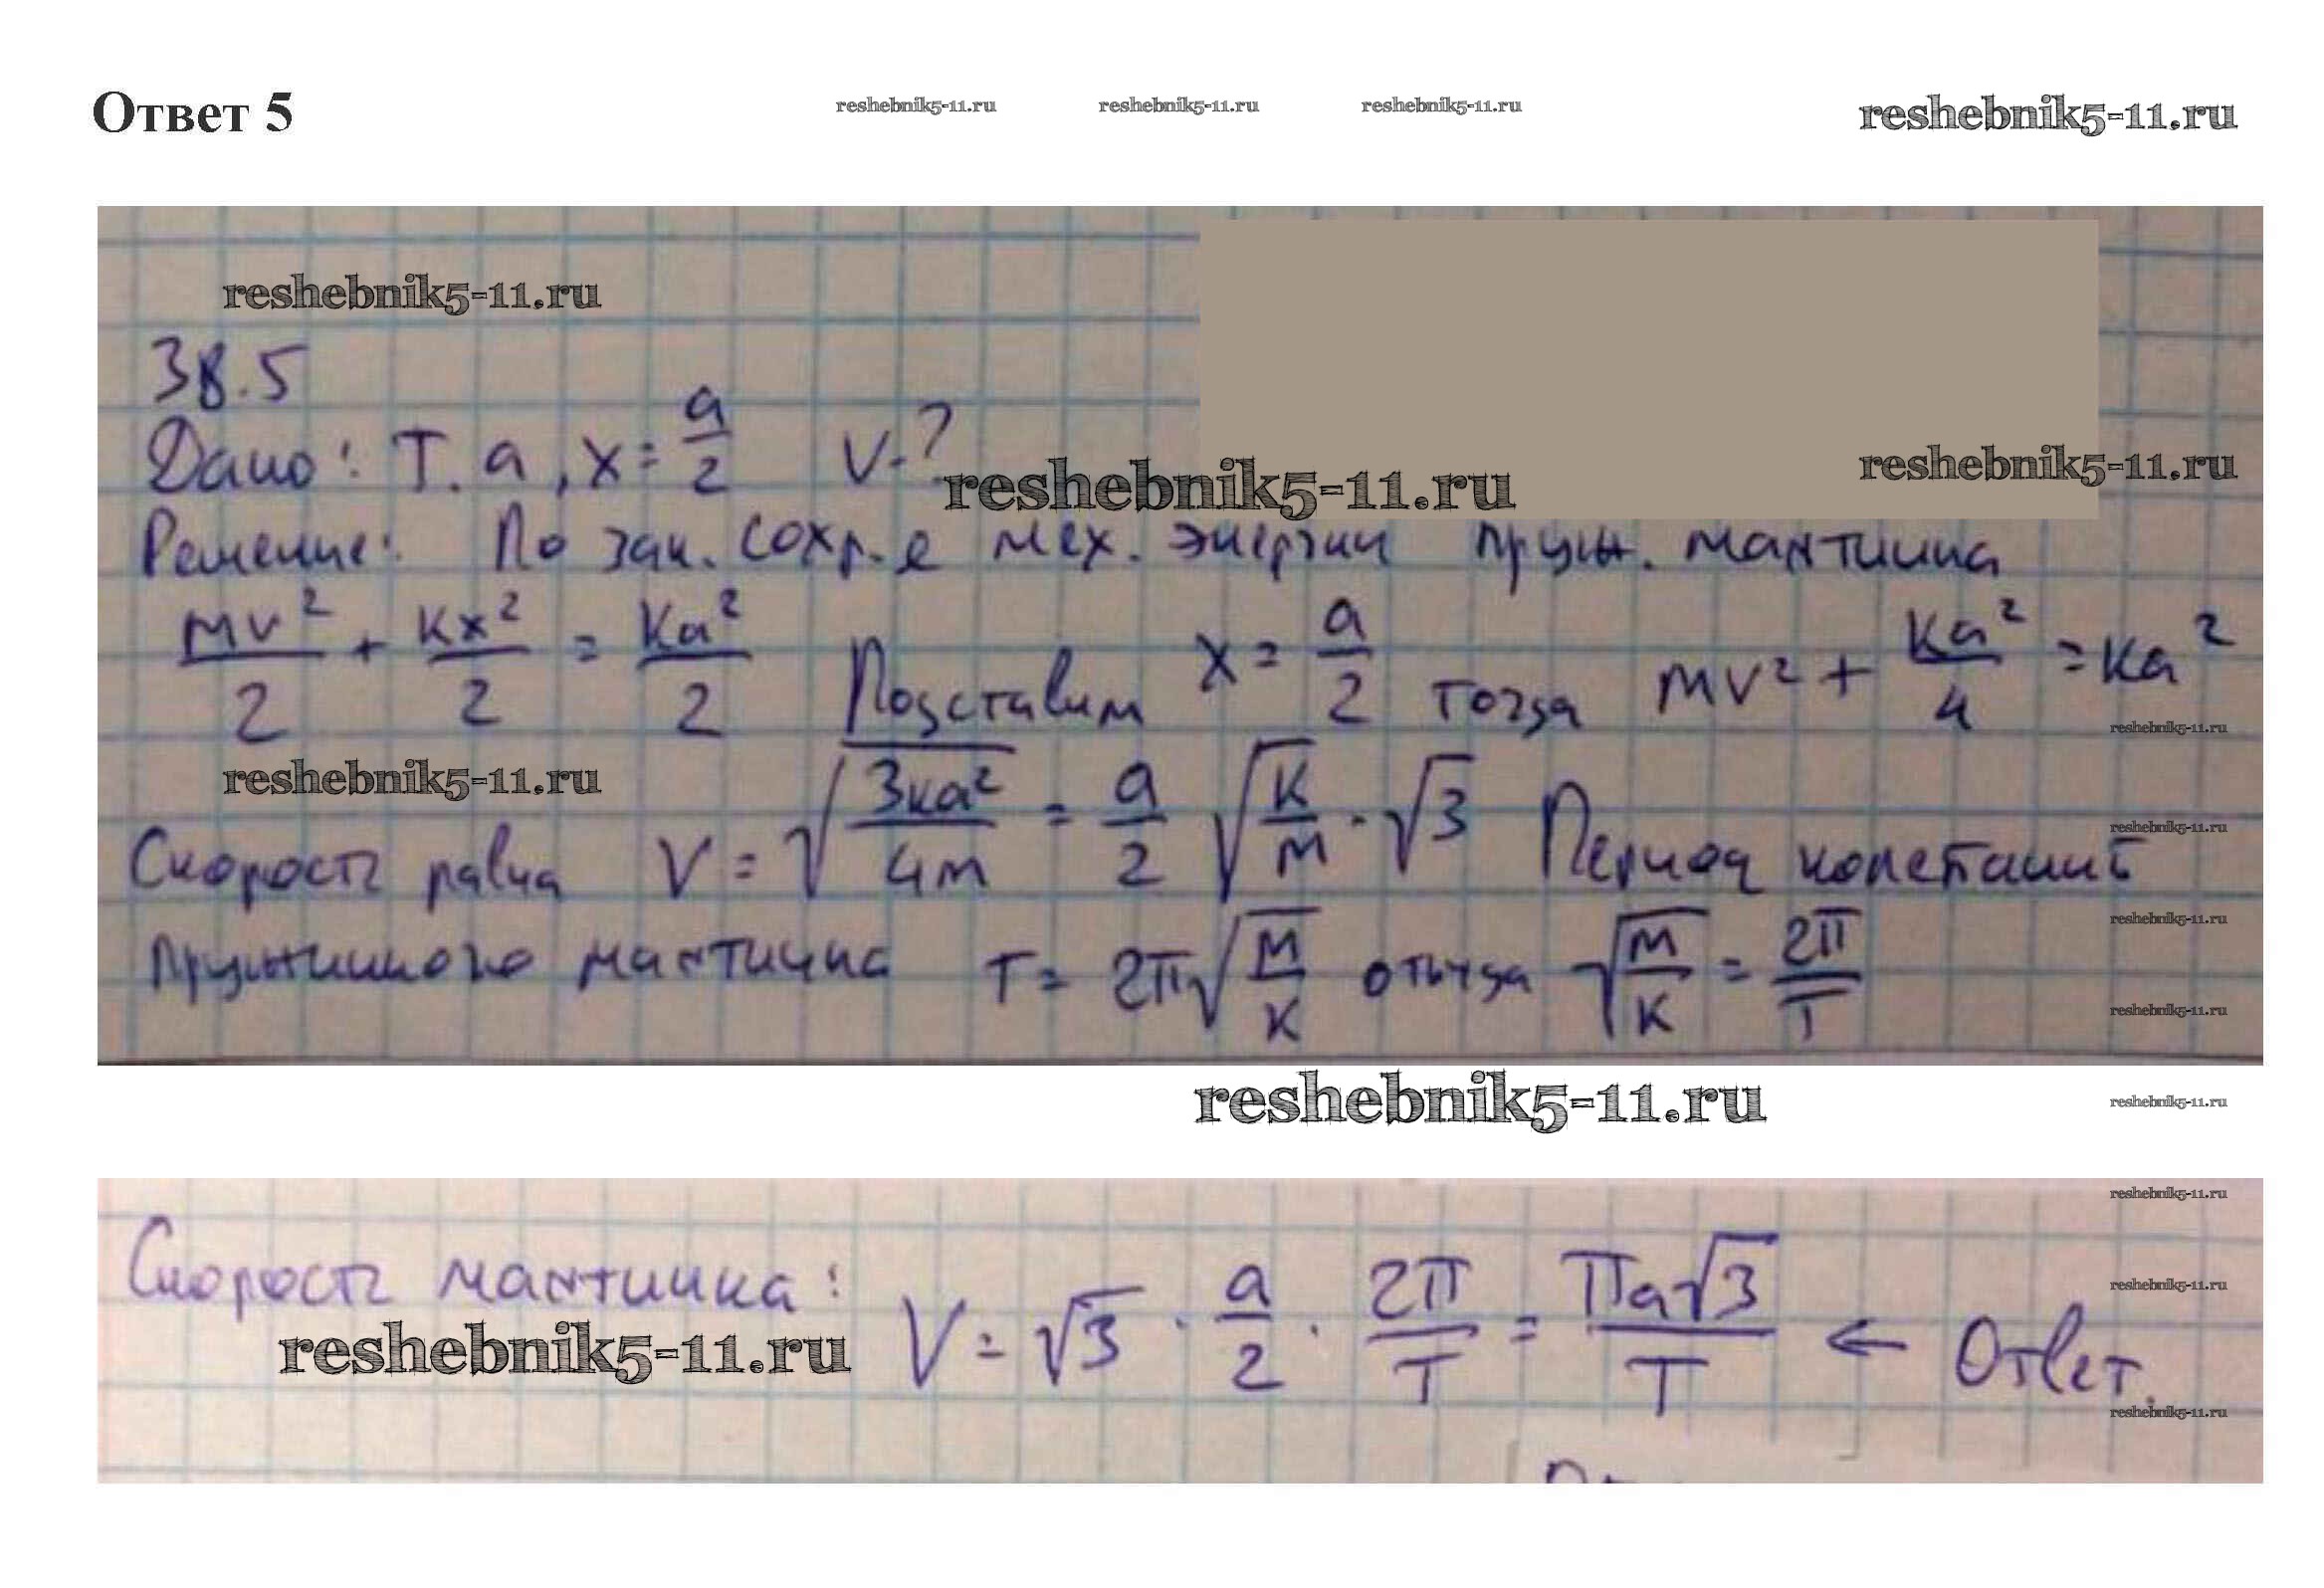 Ответ 5 reshebnik5-11.ru reshebnik5-11.ru reshebnik5-11.ru reshebnik5-11.ru
reshebnik5-11.ru
38.5
Дано: T. a, x = a/2 V-?
reshebnik5-11.ru reshebnik5-11.ru
Решение: По зак. сохр-е мех. энергии пруж. маятника
mv²/2 + kx²/2 = ka²/2 Подставим x = a/2 тогда mv² + ka²/4 = ka²
reshebnik5-11.ru
reshebnik5-11.ru
Скорость равна V = √(3ka²/4m) = a/2 √(k/m) · √3 Период колебаний
reshebnik5-11.ru
reshebnik5-11.ru
пружинного маятника T = 2π√(m/k) откуда √(m/k) = 2π/T
reshebnik5-11.ru
reshebnik5-11.ru reshebnik5-11.ru
reshebnik5-11.ru
Скорость маятника: V = √3 · a/2 · 2π/T = πa√3/T ← Ответ.
reshebnik5-11.ru
reshebnik5-11.ru
reshebnik5-11.ru